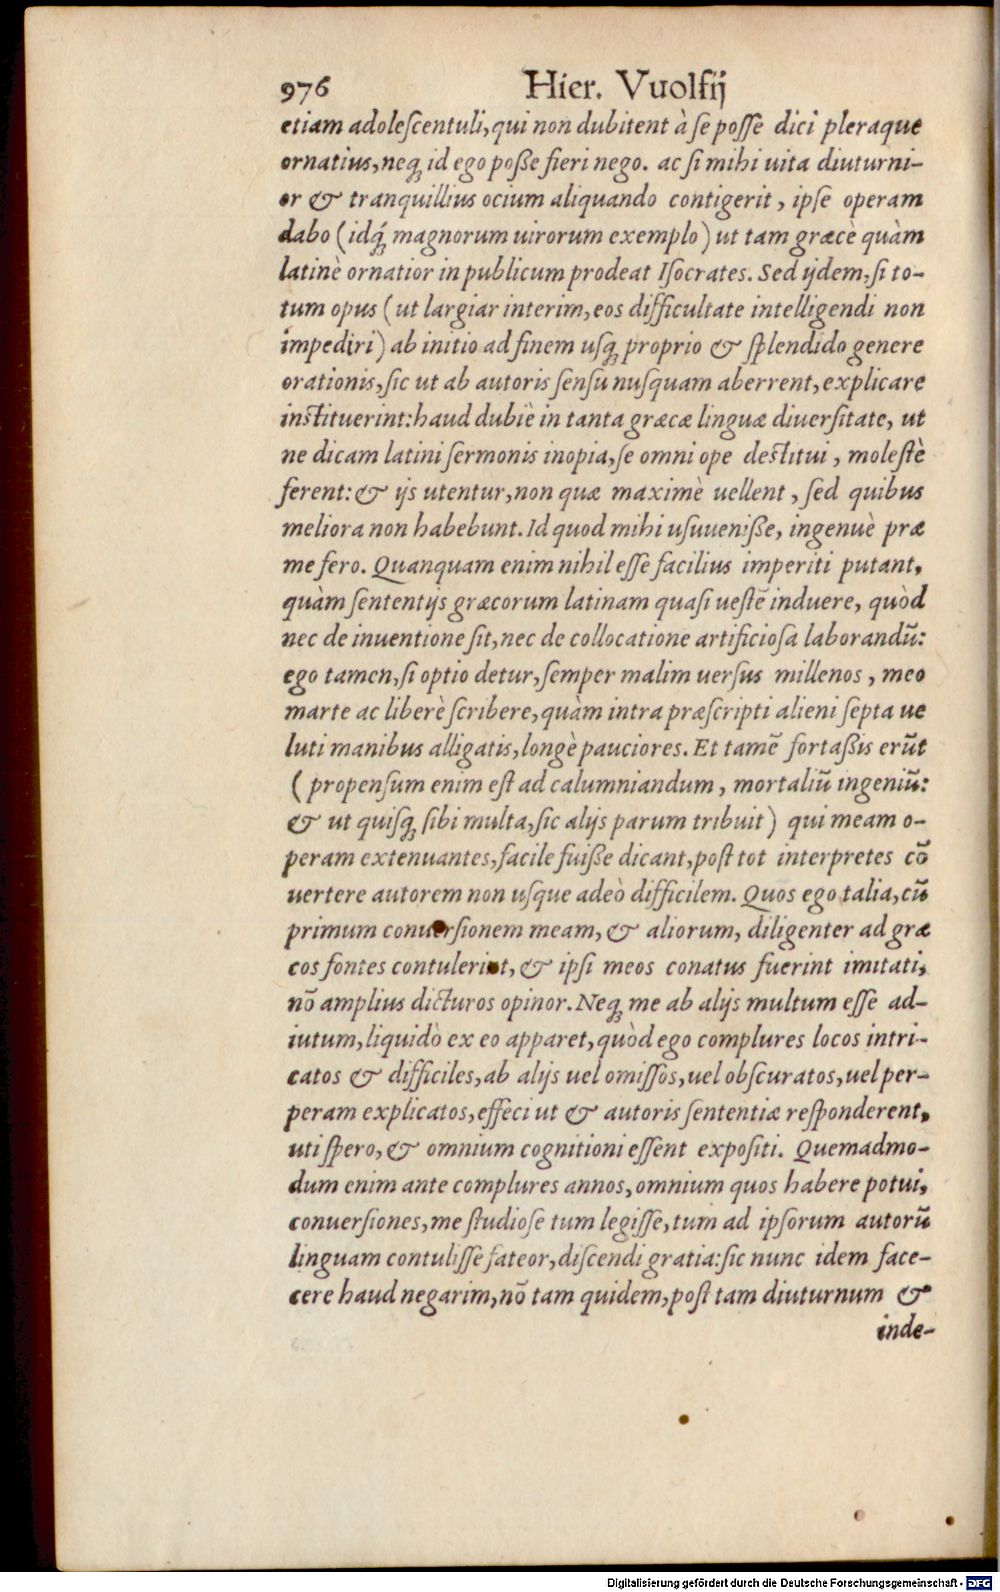 976 Hier. Vuolfij
etiam adoleſcentuli, qui non dubitent à ſe poſſe dici pleraque
ornatius, neq; id ego poße fieri nego. ac ſi mihi uita diuturni-
or & tranquillius ocium aliquando contigerit, ipſe operam
dabo (idq́; magnorum uirorum exemplo) ut tam græcè quàm
latinè ornatior in publicum prodeat Iſocrates. Sed ijdem, ſi to-
tum opus (ut largiar interim, eos difficultate intelligendi non
impediri) ab initio ad finem uſq; proprio & ſplendido genere
orationis, ſic ut ab autoris ſenſu nuſquam aberrent, explicare
inſtituerint: haud dubiè in tanta græcæ linguæ diuerſitate, ut
ne dicam latini ſermonis inopia, ſe omni ope deſtitui, moleſtè
ferent: & ijs utentur, non quæ maximè uellent, ſed quibus
meliora non habebunt. Id quod mihi uſuueniße, ingenuè præ
me fero. Quanquam enim nihil eſſe facilius imperiti putant,
quàm ſententijs græcorum latinam quaſi ueſtẽ induere, quòd
nec de inuentione ſit, nec de collocatione artificioſa laborandũ:
ego tamen, ſi optio detur, ſemper malim uerſus millenos, meo
marte ac liberè ſcribere, quàm intra præſcripti alieni ſepta ue
luti manibus alligatis, longè pauciores. Et tamẽ fortaßis erũt
(propenſum enim eſt ad calumniandum, mortaliũ ingeniũ:
& ut quiſq; ſibi multa, ſic alijs parum tribuit) qui meam o-
peram extenuantes, facile fuiße dicant, poſt tot interpretes cõ
uertere autorem non uſque adeò difficilem. Quos ego talia, cũ
primum conuerſionem meam, & aliorum, diligenter ad græ
cos fontes contulerint, & ipſi meos conatus fuerint imitati,
nõ amplius dicturos opinor. Neq; me ab alijs multum eſſe ad-
iutum, liquidò ex eo apparet, quòd ego complures locos intri-
catos & difficiles, ab alijs uel omiſſos, uel obſcuratos, uel per-
peram explicatos, effeci ut & autoris ſententiæ reſponderent,
uti ſpero, & omnium cognitioni eſſent expoſiti. Quemadmo-
dum enim ante complures annos, omnium quos habere potui,
conuerſiones, me ſtudioſe tum legiſſe, tum ad ipſorum autorũ
linguam contuliſſe fateor, diſcendi gratia: ſic nunc idem face-
cere haud negarim, nõ tam quidem, poſt tam diuturnum &
inde-
Digitalisierung gefördert durch die Deutsche Forschungsgemeinschaft - DFG